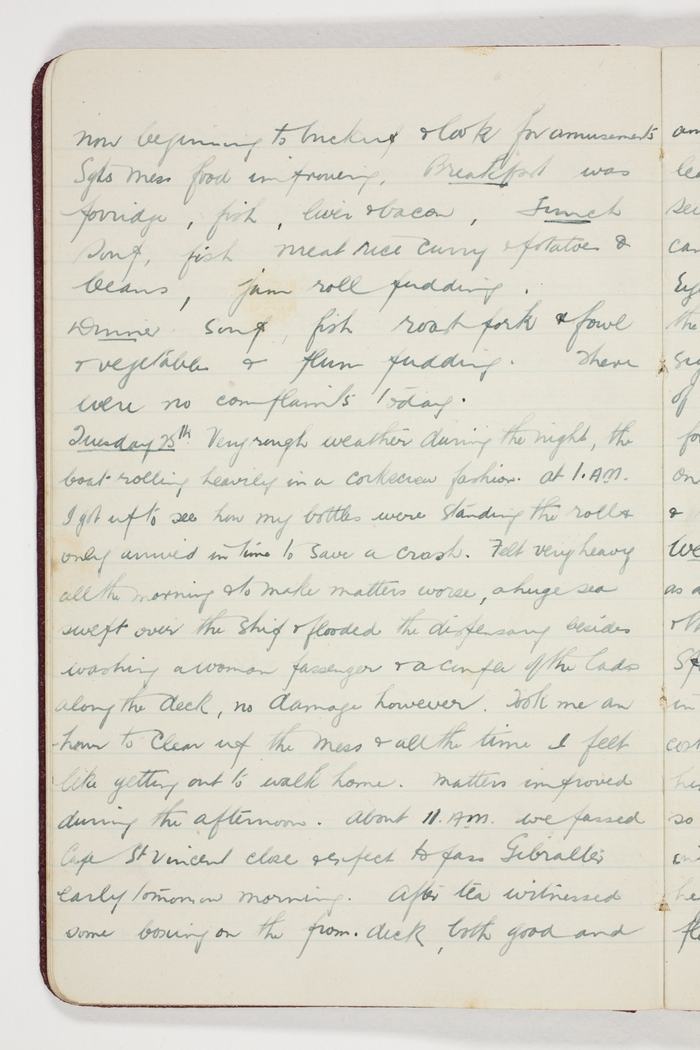 now beginning to buck up & look for amusements
Sgts Mess food improving. Breakfast was
porridge, fish, liver & bacon, Lunch
Soup, fish meat rice curry & potatoes &
beans, jam roll pudding.
Dinner Soup, fish roast pork & fowl
& vegetables & plum pudding. There
were no complaints today.
Tuesday 25th Very rough weather during the night, the
boat rolling heavily in a corkscrew fashion. at 1. A.M.
I got up to see how my bottles were standing the roll &
only arrived in time to save a crash. Felt very heavy
all the morning & to make matters worse, a huge sea
swept over the ship & flooded the dispensary besides
washing a woman passenger & a couple of the lads
along the deck, no damage however. Took me an
hour to clear up the mess & all the time I felt
like getting out to walk home. Matters improved
during the afternoon. About 11. A.M. we passed
Cape St Vincent close & expect to pass Gibralter
early tomorrow morning. After tea witnessed
some boxing on the prom. deck, both good and
am
lea
can
the
of
on
&
we
as a
in
so
he